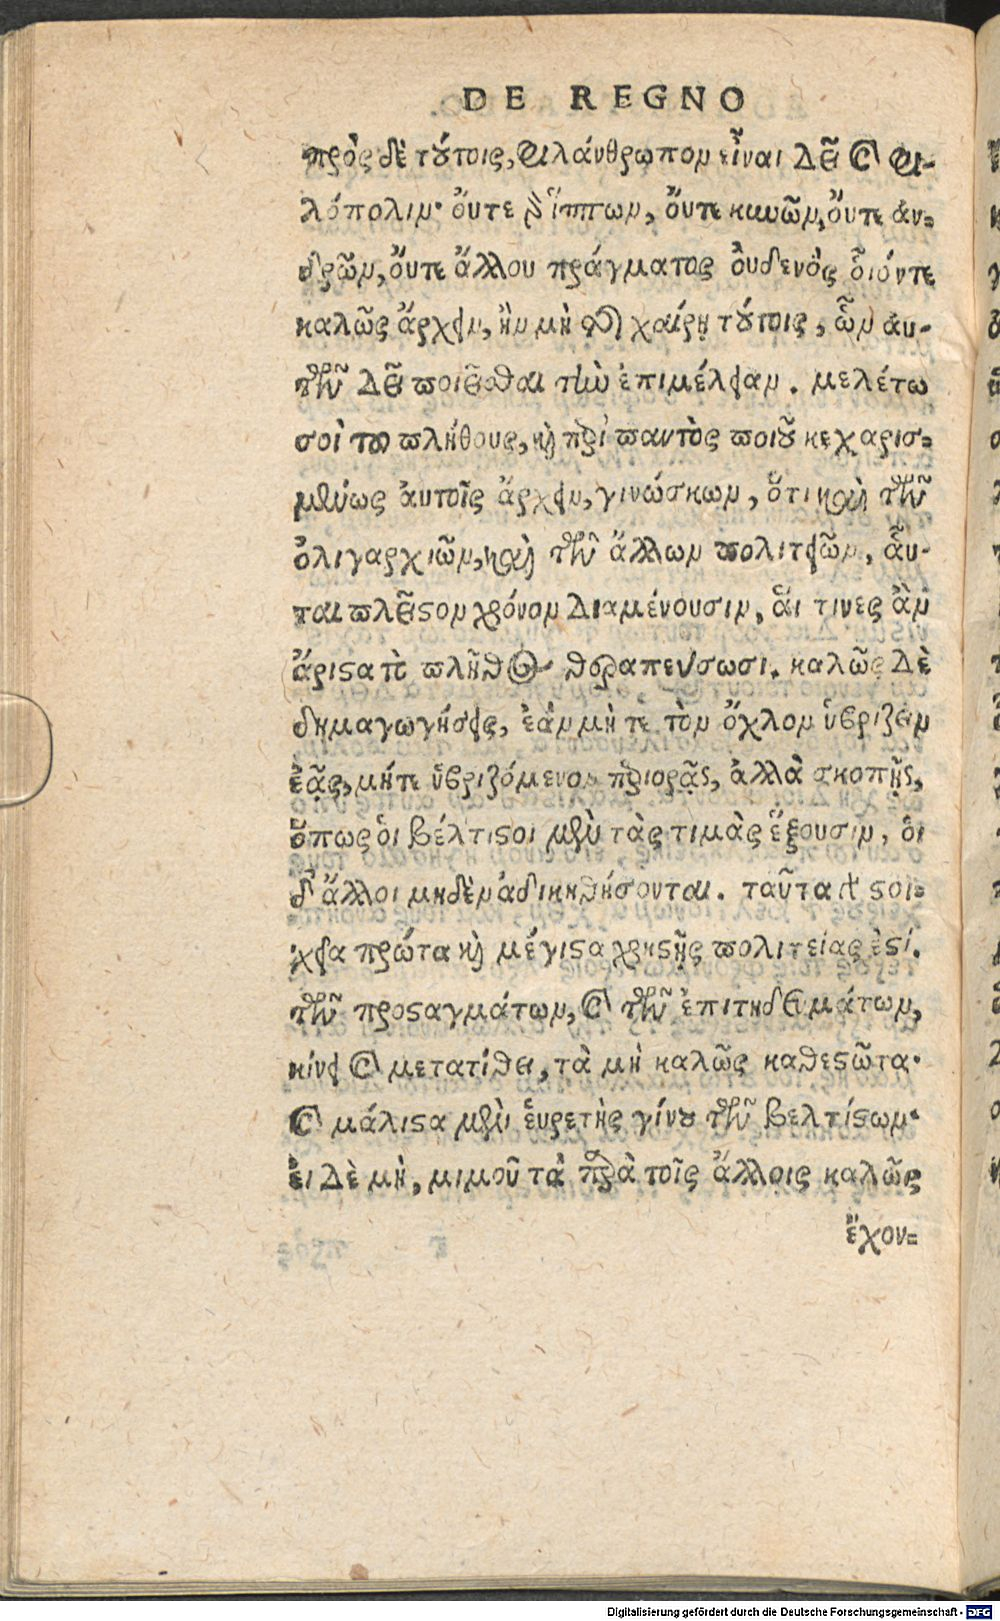 DE REGNO
πρὸς δὲ τούτοις, φιλάνθρωπον εἶναι δεῖ καὶ φι-
λόπολιν· ὄυτε γὰρ ἵππων, ὄυτε κυνῶν, ὄυτε ἀν-
δρῶν, ὄυτε ἄλλου πράγματος ὀυδενὸς ὁιόντε
καλῶς ἄρχειν, ἢν μὴ τις χαίρῃ τούτοις, ὧν ἀυ-
τῶν δεῖ ποιεῖσθαι τὴν ἐπιμέλειαν. μελέτω
σοὶ του πλήθους, καὶ περὶ παντὸς ποιοῦ κεχαρισ-
μένως ἀυτοῖς ἄρχειν, γινώσκων, ὅτι καὶ τῶν
ὀλιγαρχιῶν, καὶ τῶν ἄλλων πολιτειῶν, ἇυ-
ται πλεῖστον χρόνον διαμένουσιν, ἅι τινες ἂν
ἄριστα τὸ πλῆθος θεραπεύσωσι. καλῶς δὲ
δημαγωγήσεις, ἐὰν μὴ τε τὸν ὄχλον ὑβρίζειν
ἐᾷς, μήτε ὑβριζόμενον περιορᾷς, ἀλλὰ σκοπῇς,
ὅπως ὁι βέλτιστοι μὲν τὰς τιμὰς ἕξουσιν, ὁι
δ' ἄλλοι μηδὲν ἀδικηθήσονται. ταῦτα γὰρ στοι-
χεῖα πρῶτα καὶ μέγιστα χρηστῆς πολιτείας ἐστί.
τῶν προσταγμάτων, καὶ τῶν ἐπιτηδευμάτων,
κίνει καὶ μετατίθει, τὰ μὴ καλῶς καθεστῶτα·
καὶ μάλιστα μὲν ἑυρετὴς γίνου τῶν βελτίστων·
ἐι δὲ μὴ, μιμοῦ τὰ παρὰ τοῖς ἄλλοις καλῶς
ἔχον-
Digitalisierung gefördert durch die Deutsche Forschungsgemeinschaft - DFG